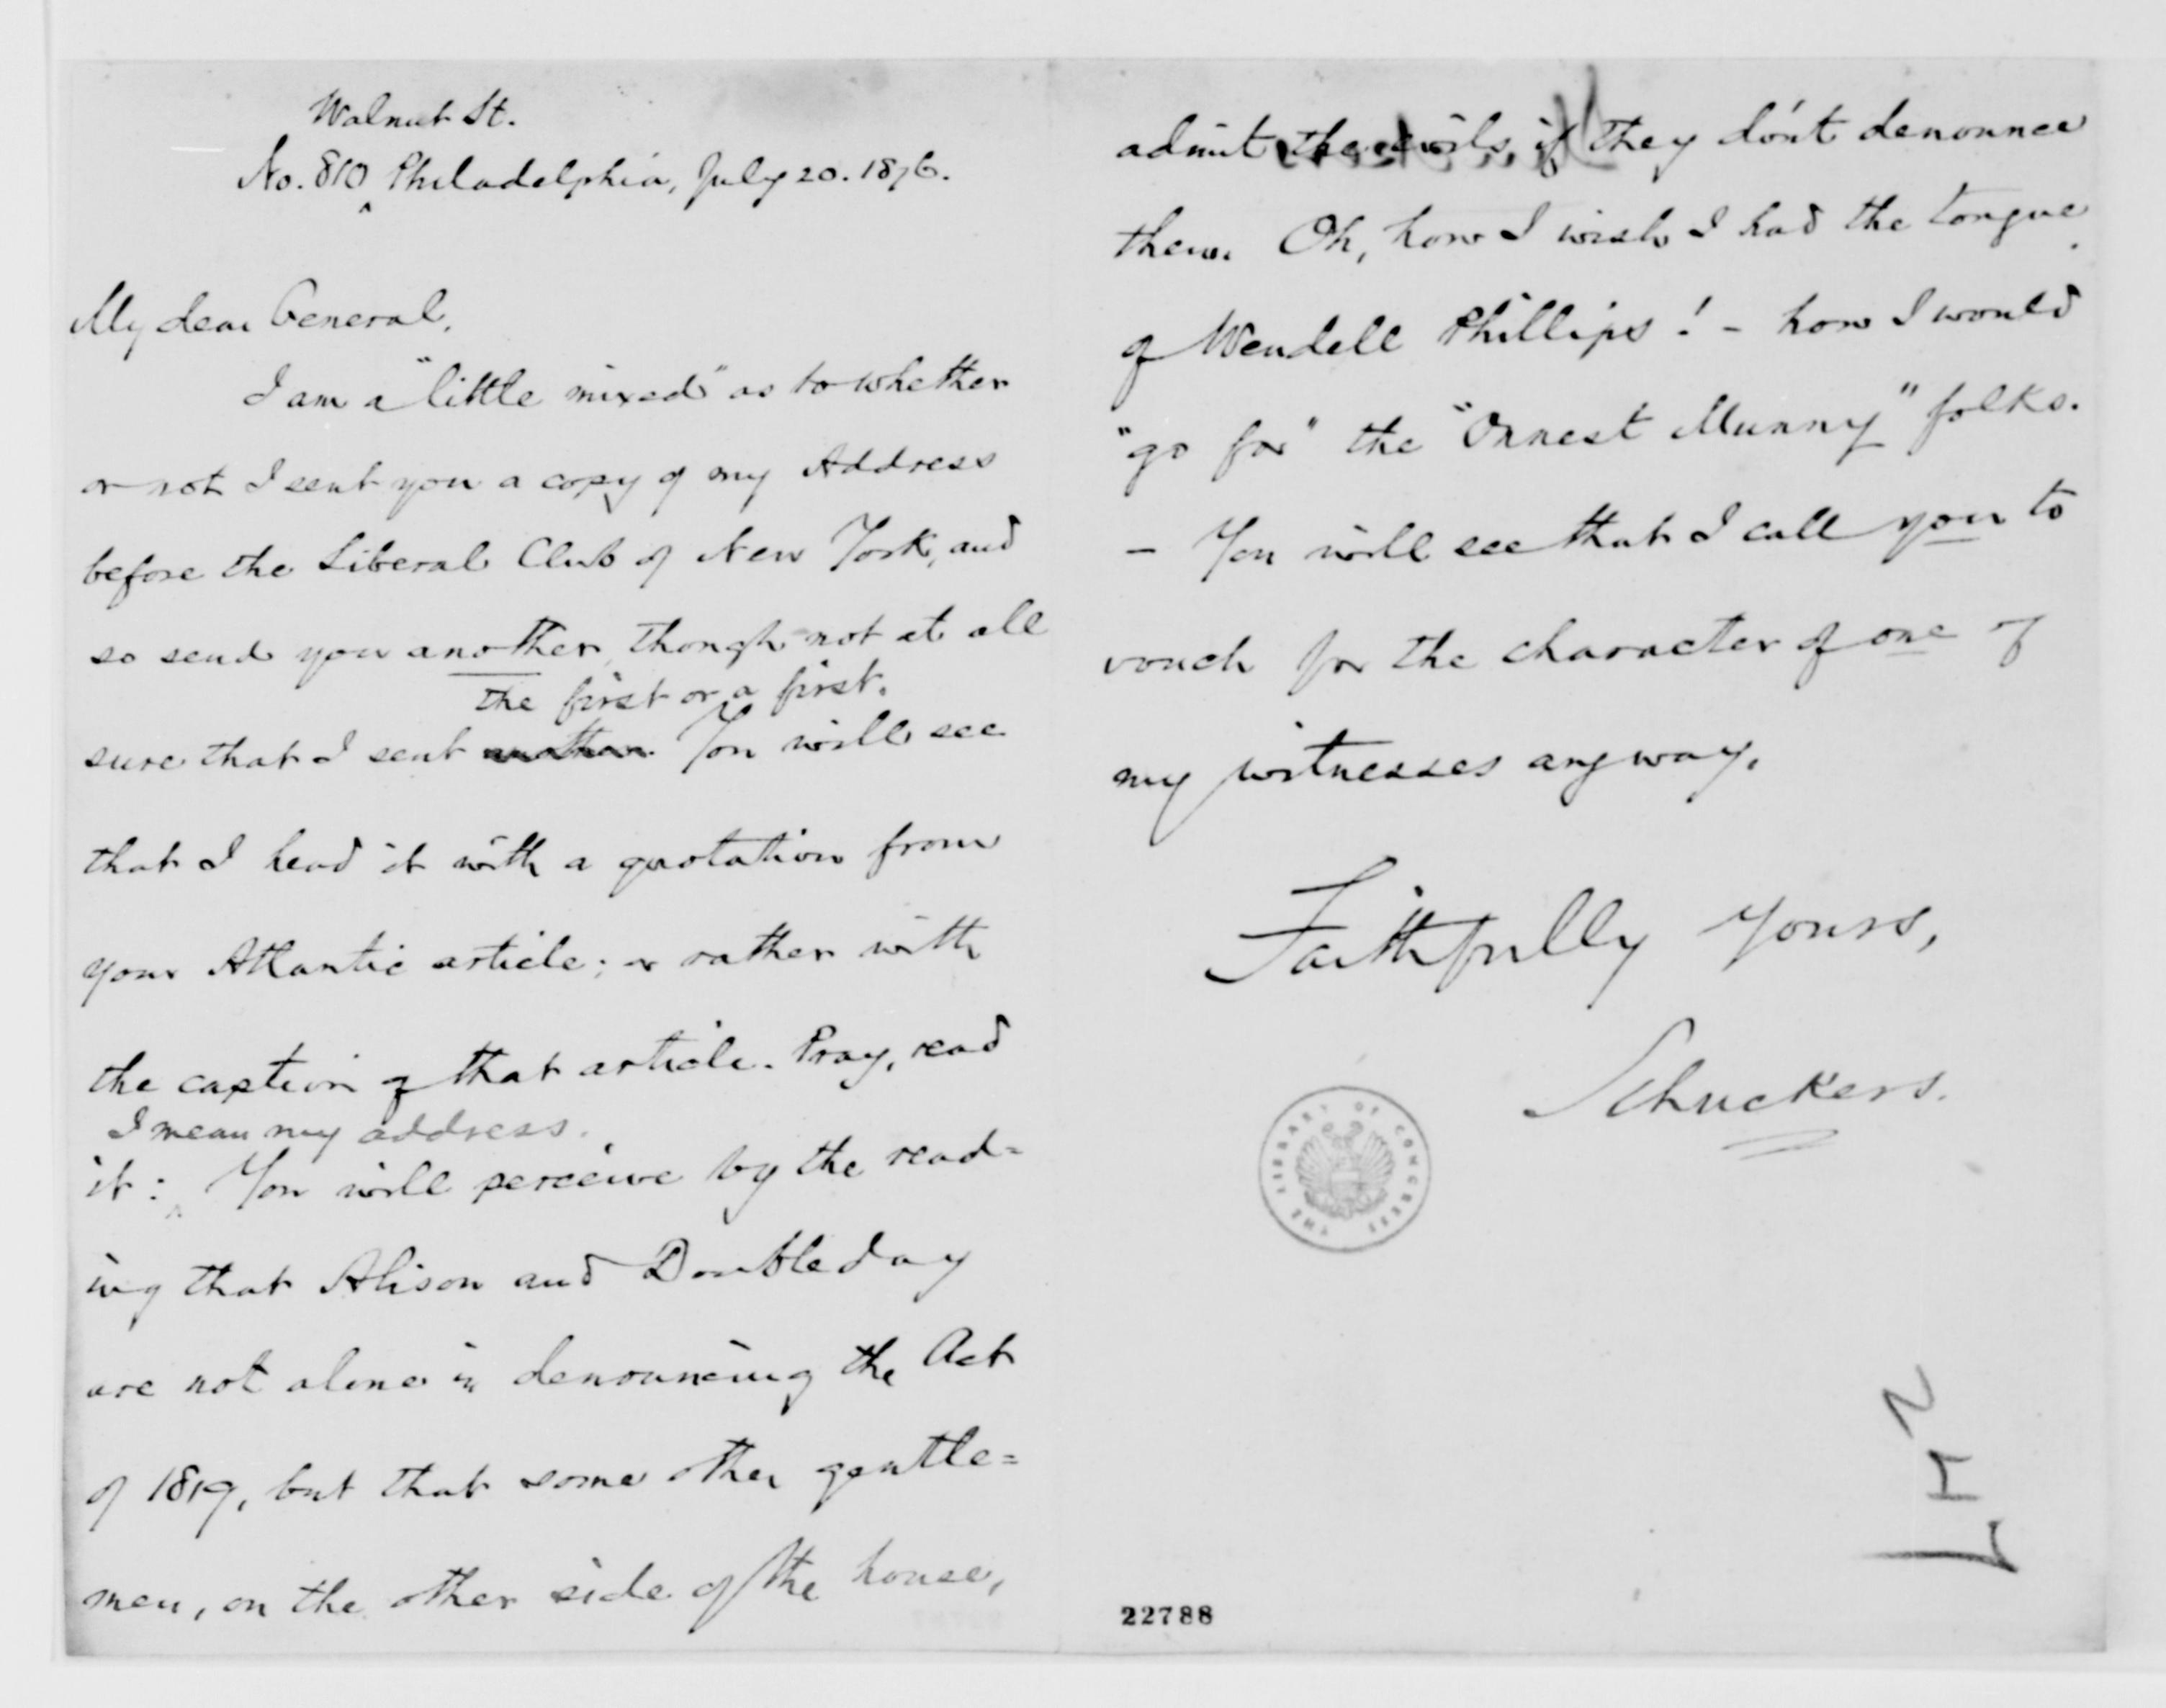 Walnut St.
No. 810 ‸ Philadelphia, July 20. 1876.
My dear General,
I am a "little mixed" as to whether
or not I sent you a copy of my Address
before the Liberal Club of New York, and
so send you another, though not at all
the first or a first.
sure that I sent another. You will see
that I head it with a quotation from
your Atlantic article; or rather with
the caption of that article. Pray, read
I mean my address.
it: ‸ You will perceive by the read=
ing that Alison and Doubleday
are not alone in denouncing the Act
of 1819, but that some other gentle=
men, on the other side of the house,
admit the evils, if they don't denounce
them. Oh, how I wish I had the tongue
of Wendell Phillips! - how I would
"go for" the "Onnest Munny" folks.
- You will see that I call you to
vouch for the character of one of
my witnesses anyway.
Faithfully Yours,
Schuckers.
THE LIBRARY OF CONGRESS
22788